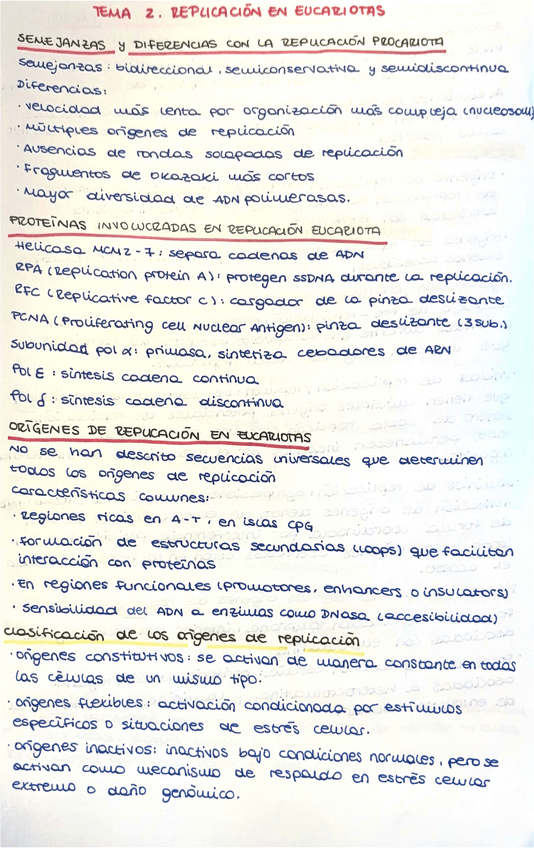 TEMA 2. REPLICACIÓN EN EUCARIOTAS
SEMEJANZAS y DIFERENCIAS CON LA REPLICACIÓN PROCARIOTA
Semejanzas: bidireccional, semiconservativa y semidiscontinua
Diferencias:
· Velocidad más lenta por organización más compleja (nucleosom)
· Múltiples orígenes de replicación
· Ausencias de rondas solapadas de replicación
· Fragmentos de Okazaki más cortos
· Mayor diversidad de ADN polimerasas.
PROTEÍNAS INVOLUCRADAS EN REPLICACIÓN EUCARIOTA
Helicasa MCM2-7: separa cadenas de ADN
RPA (Replication protein A): protegen ssDNA durante la replicación.
RFC (Replicative factor C): cargador de la pinza deslizante
PCNA (Proliferating cell Nuclear Antigen): pinza deslizante (3 sub.)
Subunidad pol α: primasa, sintetiza cebadores de ARN
Pol ε: síntesis cadena continua
Pol δ: síntesis cadena discontinua
ORÍGENES DE REPLICACIÓN EN EUCARIOTAS
No se han descrito secuencias universales que determinen
todos los orígenes de replicación
características comunes:
· Regiones ricas en A-T, en islas CpG
· Formación de estructuras secundarias (loops) que facilitan
interacción con proteínas
· En regiones funcionales (promotores, enhancers o insulators)
· Sensibilidad del ADN a enzimas como DNasa (accesibilidad)
clasificación de los orígenes de replicación
· orígenes constitutivos: se activan de manera constante en todas
las células de un mismo tipo.
· orígenes flexibles: activación condicionada por estímulos
específicos o situaciones de estrés celular.
· orígenes inactivos: inactivos bajo condiciones normales, pero se
activan como mecanismo de respaldo en estrés celular
extremo o daño genómico.